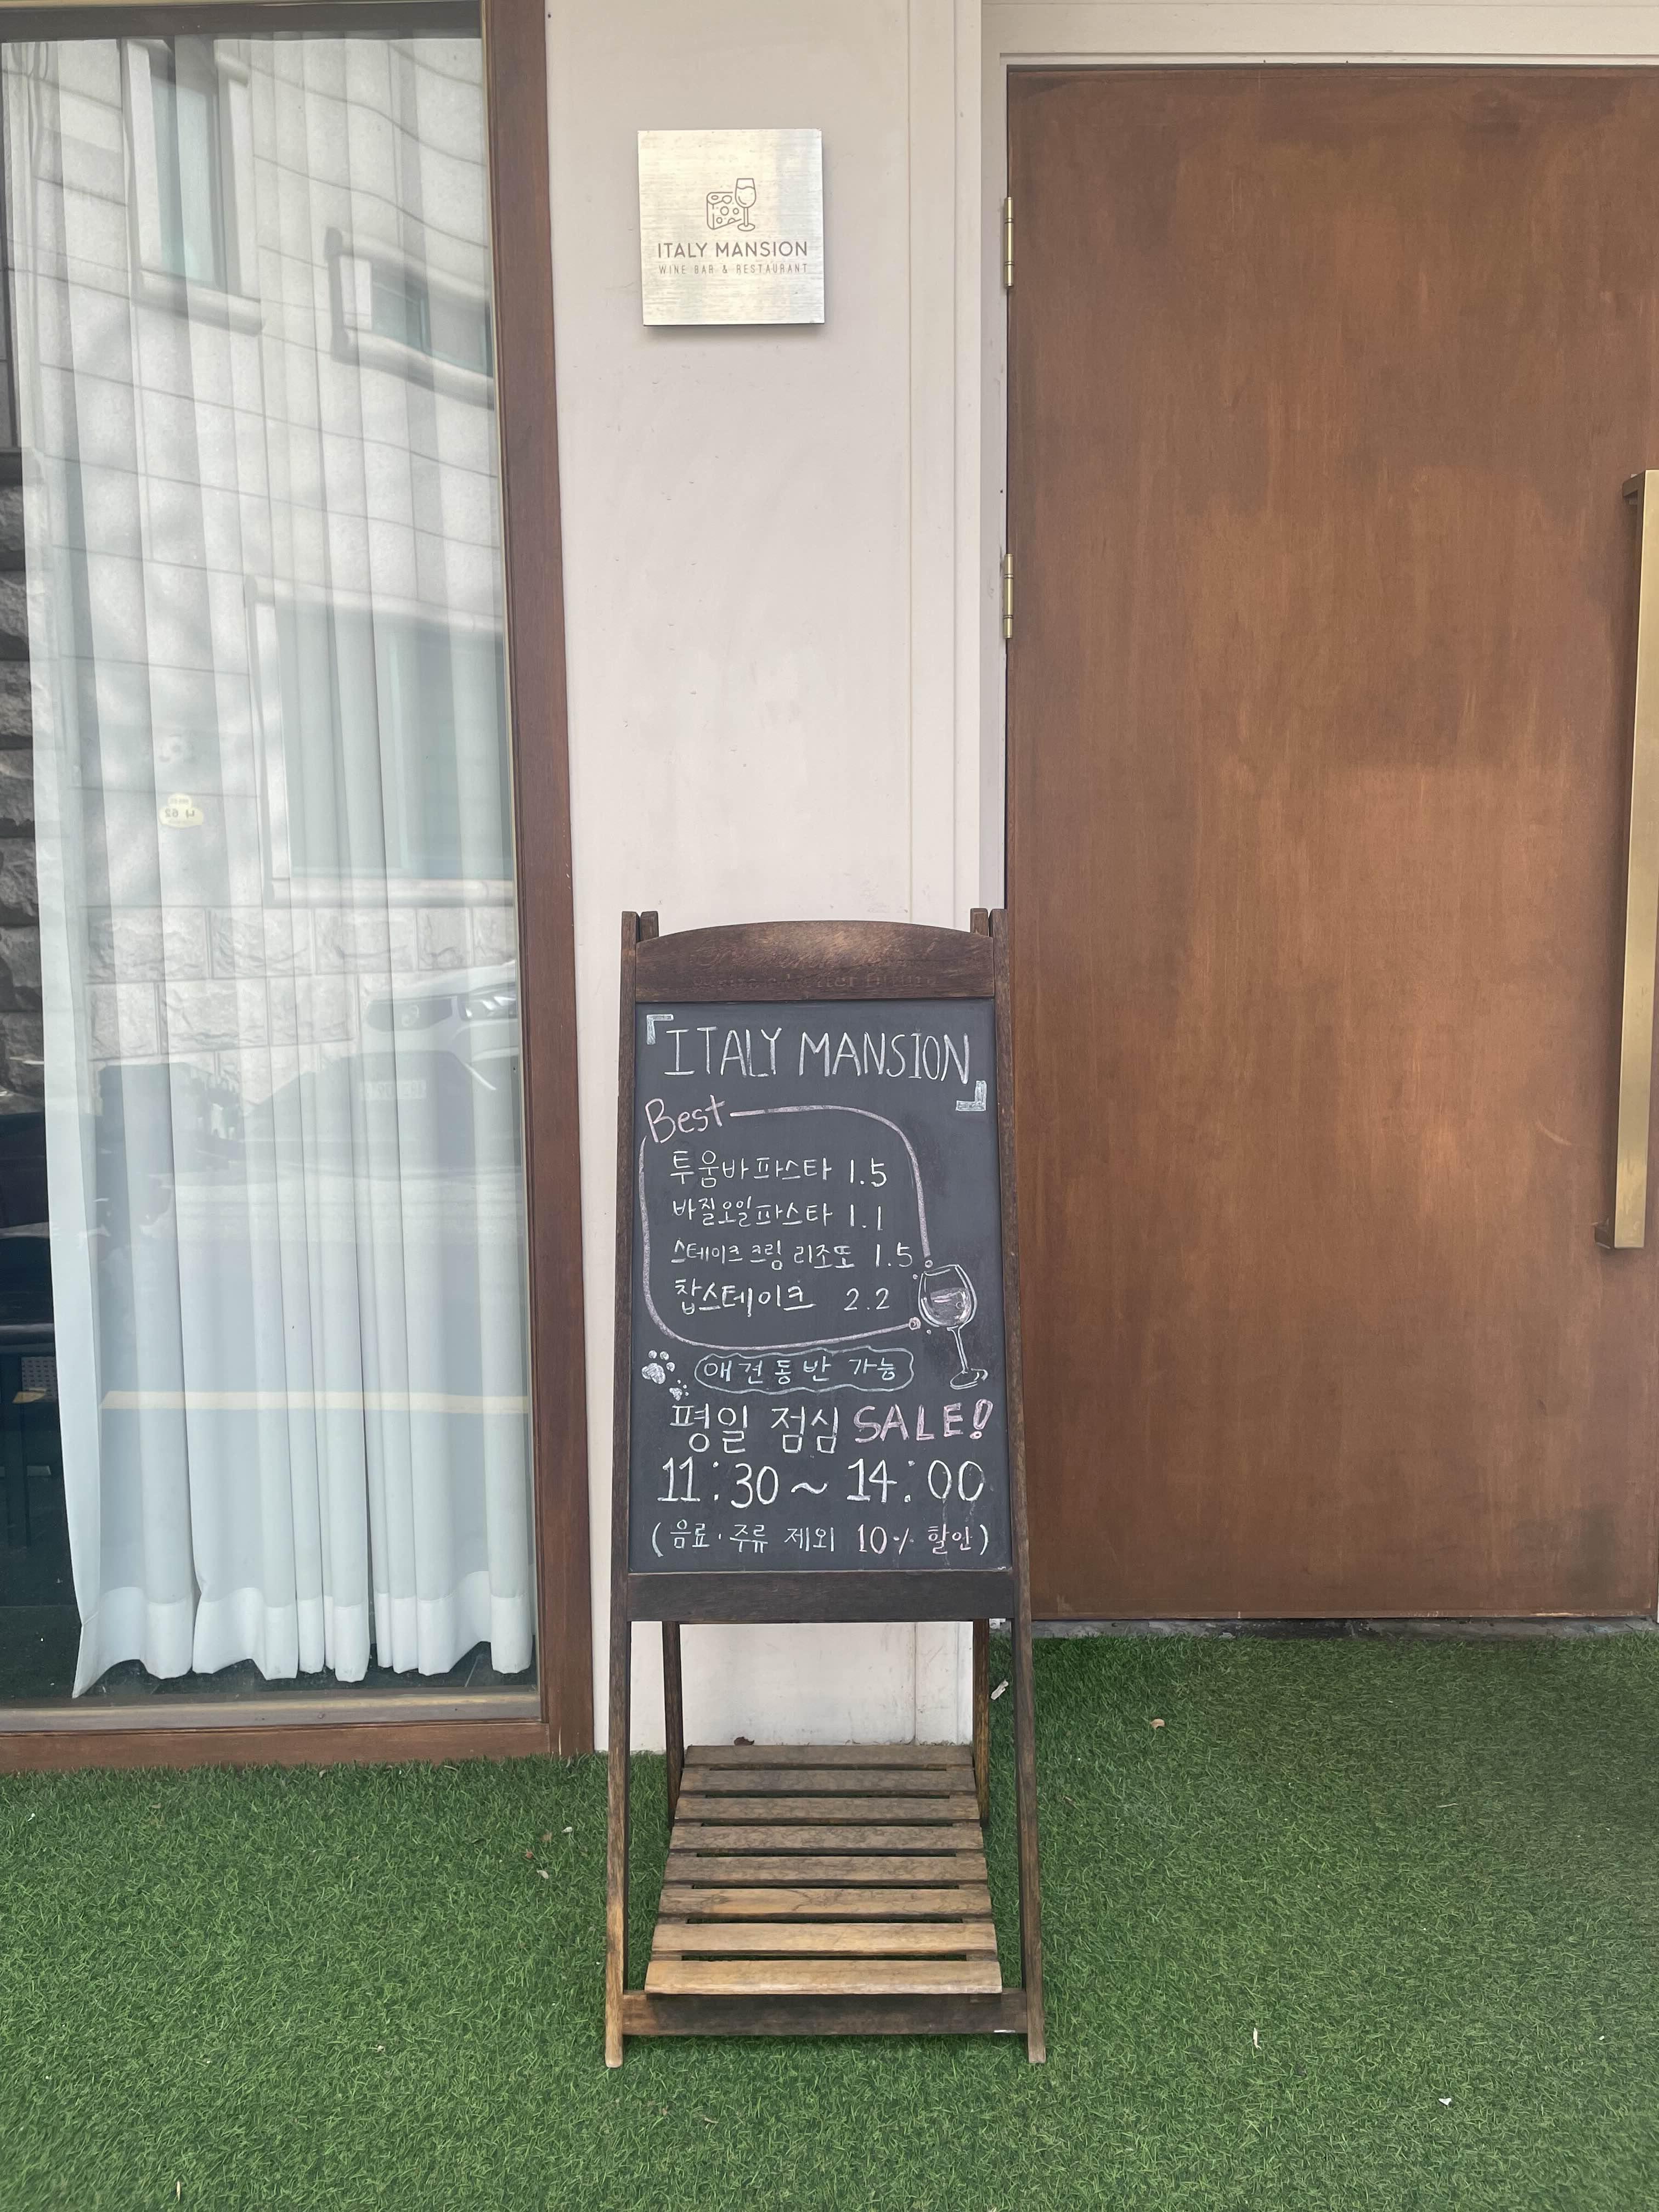 ITALY MANSION
WINE BAR & RESTAURANT
「ITALY MANSION」
Best
투움바파스타 1.5
바질오일파스타 1.1
스테이크크림 리조또 1.5
찹스테이크 2.2
애견동반 가능
평일 점심 SALE!
11:30~14:00
(음료·주류 제외 10% 할인)